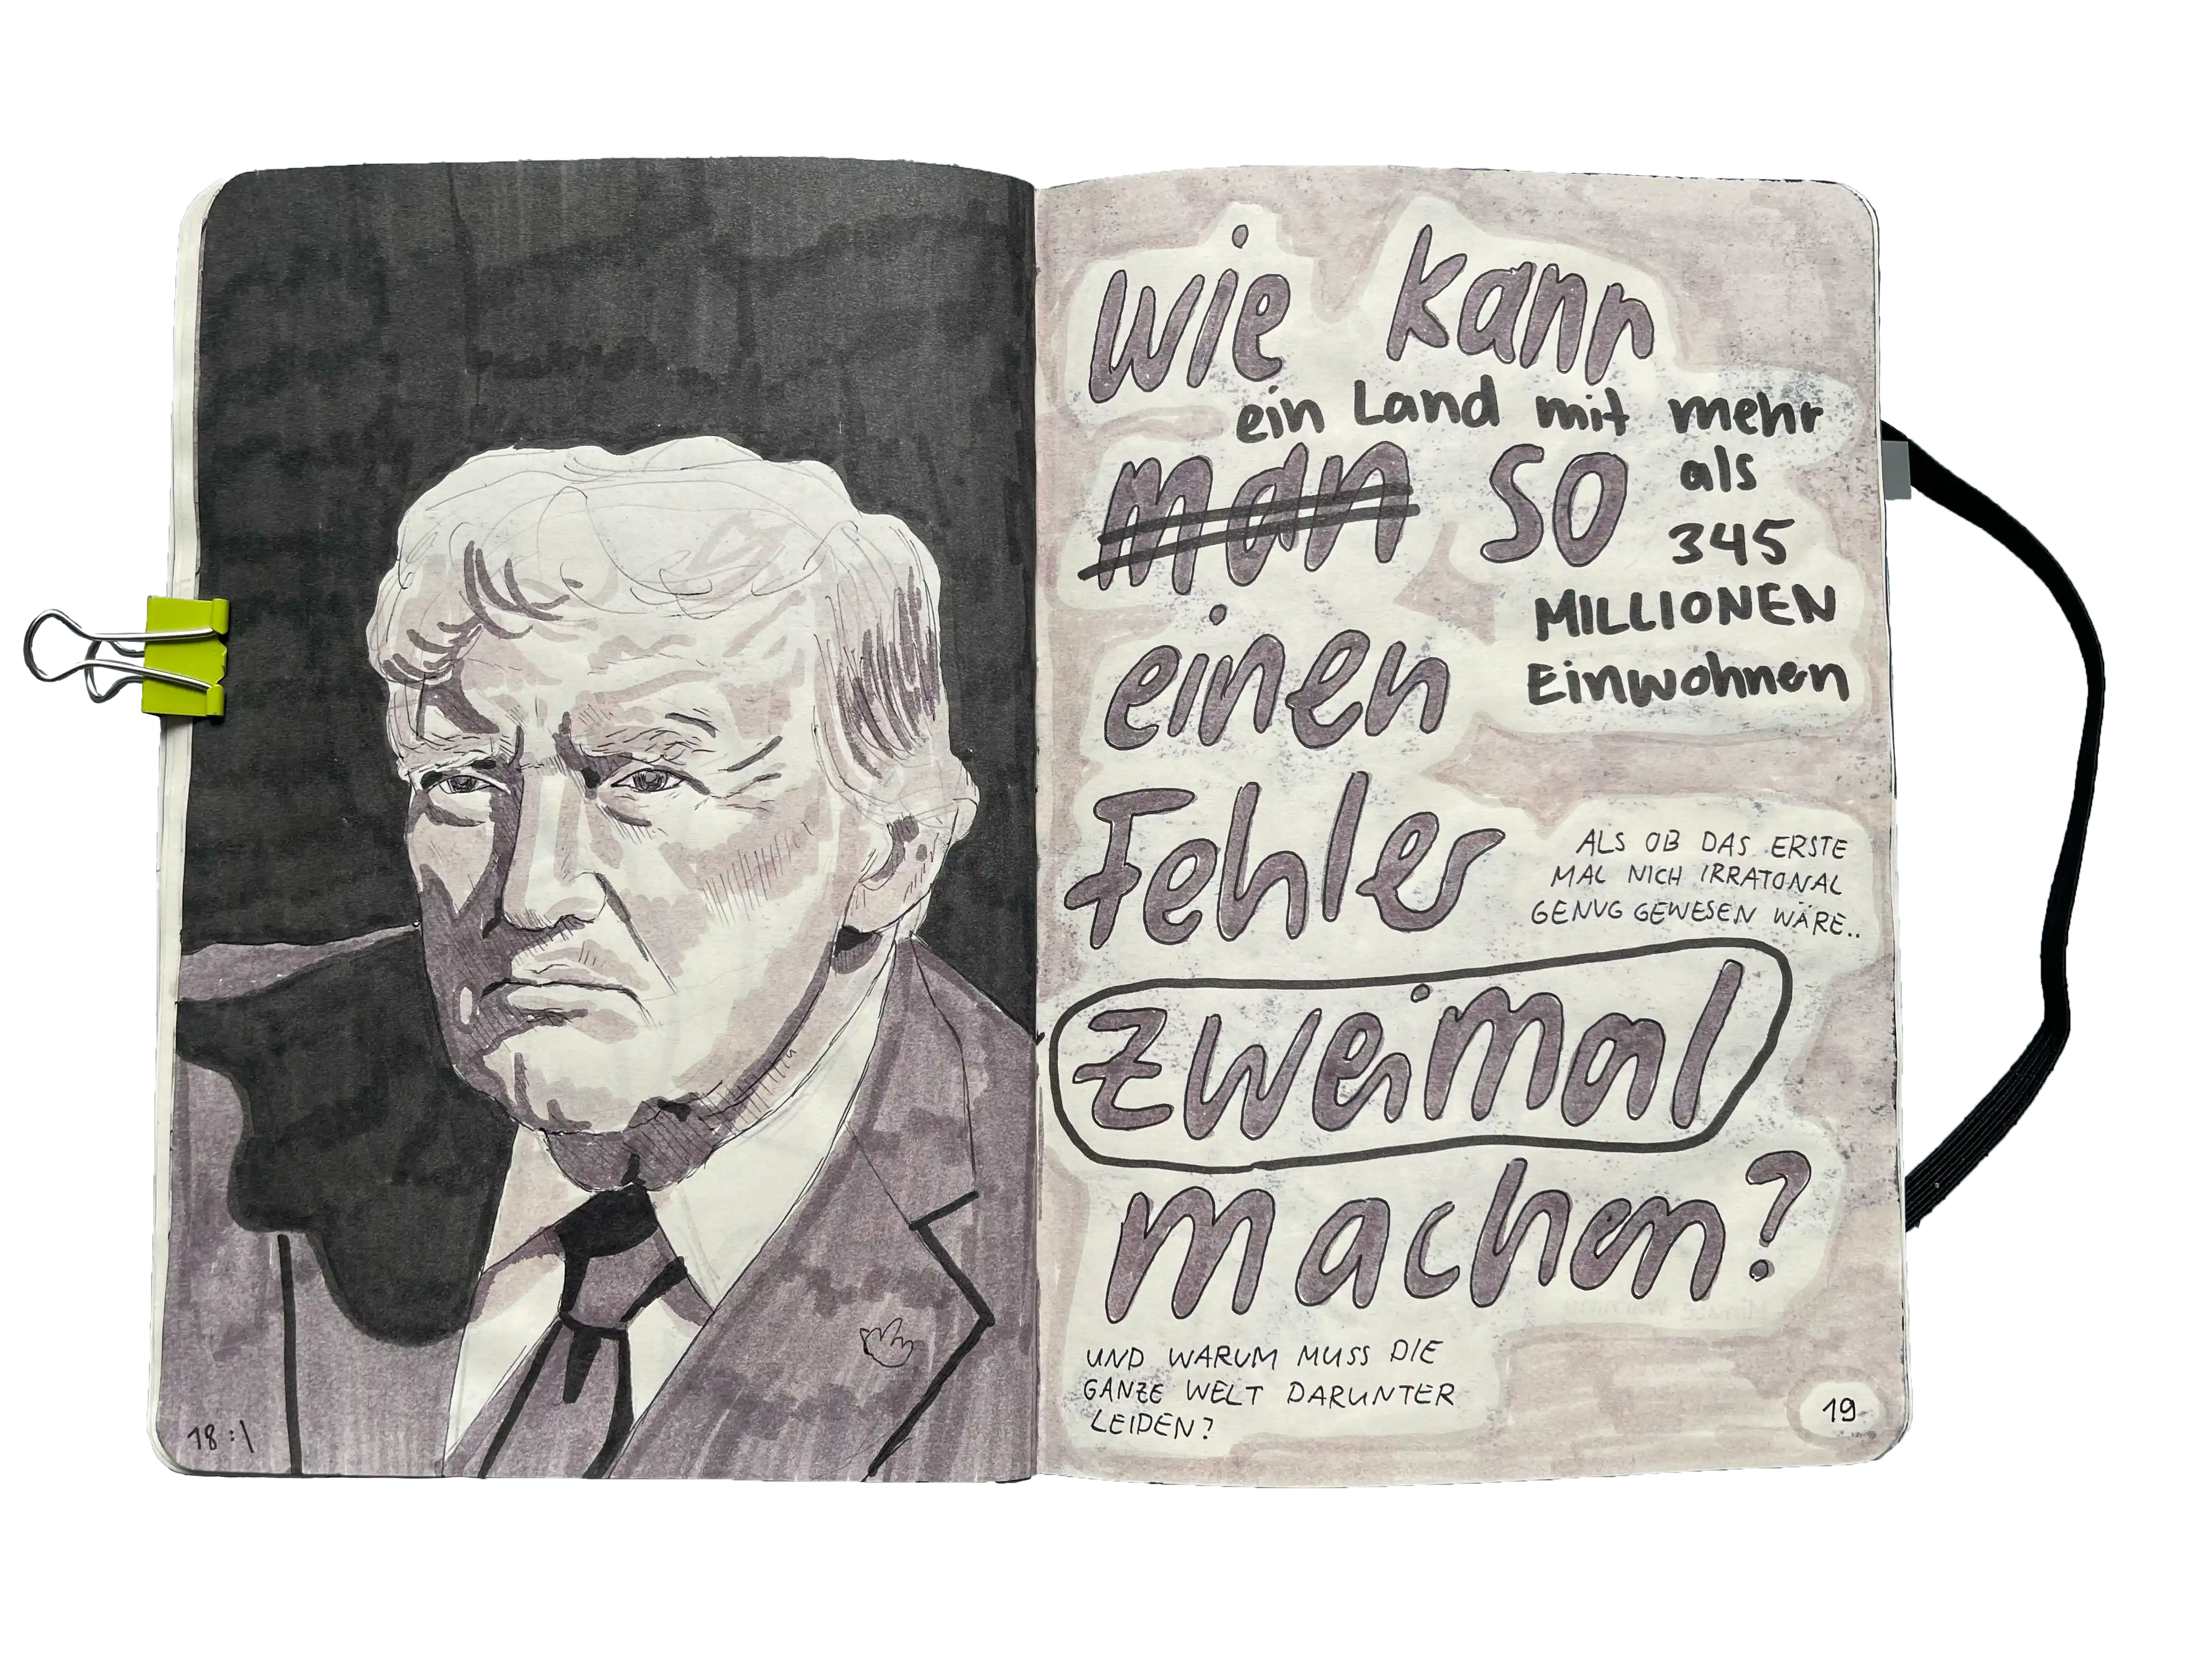 wie kann
ein Land mit mehr
man so als
345
MILLIONEN
einen Einwohnern
Fehler
ALS OB DAS ERSTE
MAL NICH IRRATONAL
GENUG GEWESEN WÄRE..
zweimal
machen?
UND WARUM MUSS DIE
GANZE WELT DARUNTER
LEIDEN?
18:\
19